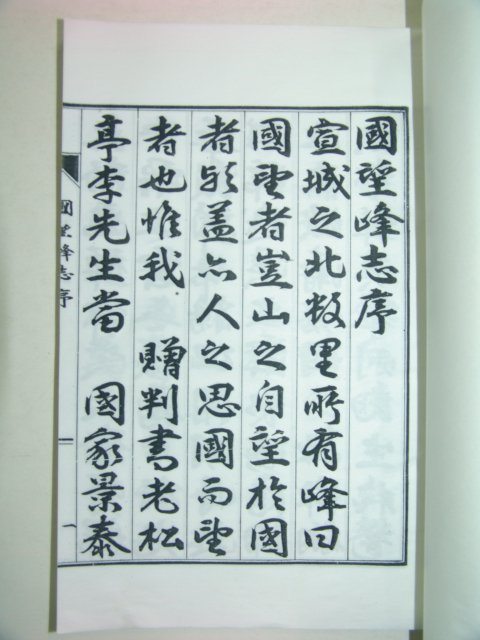 國望峰志序
宣城之北數里所有峰曰
國望者豈山之自望於國
者歟盖亦人之思國而望
者也惟我 贈判書老松
亭李先生當 國家景泰
國望峰志序 一